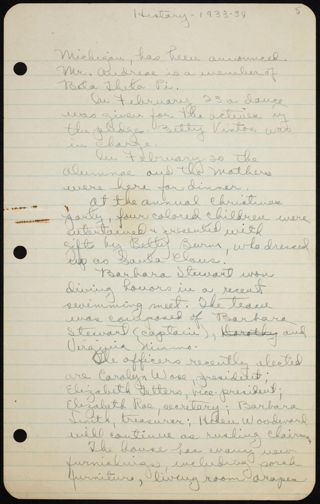 History - 1933-34
5
Michigan, has been announced.
Mr. Andreae is a member of
Beta Theta Pi.
On February 23 a dance
was given for the actives by
the pledges. Betty Vinton was
in charge.
On February 20 the
alumnae and the Mothers
were here for dinner.
At the annual Christmas
party, four colored children were
entertained & presented with
gifts by Betty Burns, who dressed
up as Santa Claus.
Barbara Stewart won
diving honors in a recent
swimming meet. The team
was composed of Barbara
Stewart (captain), Dorothy and
Virginia Nimmo.
The officers recently elected
are Carolyn Wose, president;
Elizabeth Fetters, vice-president;
Elizabeth Roe, secretary; Barbara
Smith, treasurer; Helen Woodward
will continue as rushing chairman.
The house has many new
furnishings, including porch
furniture, living room drapes